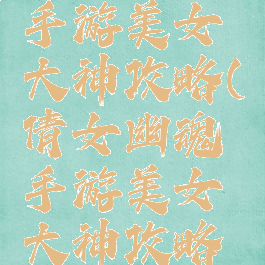 手游美女
大神攻略(
倩女幽魂
手游美女
大神攻略